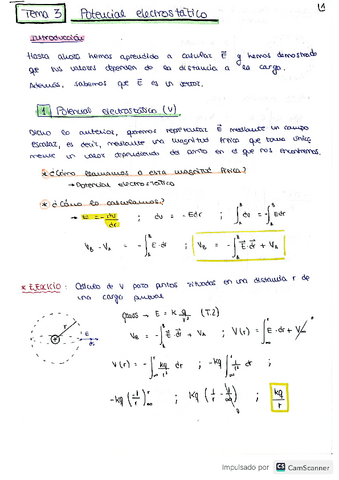 Tema 3 Potencial electrostático
Introducción
Hasta ahora hemos aprendido a calcular E⃗ y hemos demostrado
que sus valores dependen de la distancia a la carga.
Además, sabemos que E⃗ es un vector.
1 Potencial electrostático (V)
Dicho lo anterior, queremos representar E⃗ mediante un campo
escalar, es decir, mediante una magnitud física que toma única-
mente un valor dependiendo del punto en el que nos encontremos.
* ¿Cómo llamamos a esta magnitud física?
→ Potencial electrostático
* ¿Cómo lo calculamos?
→ E = - dV/dr ; dV = - Edr ; ∫ dV = - ∫ Edr
V_B - V_A = - ∫ E · dr ; V_B = - ∫ E⃗ · dr⃗ + V_A
* EJERCICIO: Cálculo de V para puntos situados en una distancia r de
una carga puntual
→ E = K q/r² (T.2)
V_B = - ∫ E⃗ · dr⃗ + V_A ; V(r) = ∫ E · dr + V∞
V(r) = - ∫ kq/r² dr ; -kq ∫ 1/r² dr ;
-kq (-1/r) ; kq (1/r - 1/∞) ; kq/r
r
E
Impulsado por CS CamScanner